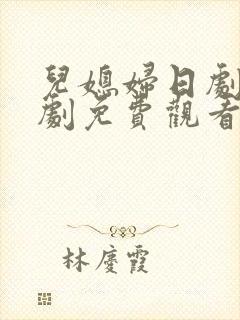 兒媳婦日劇
劇免費觀看
林慶霞